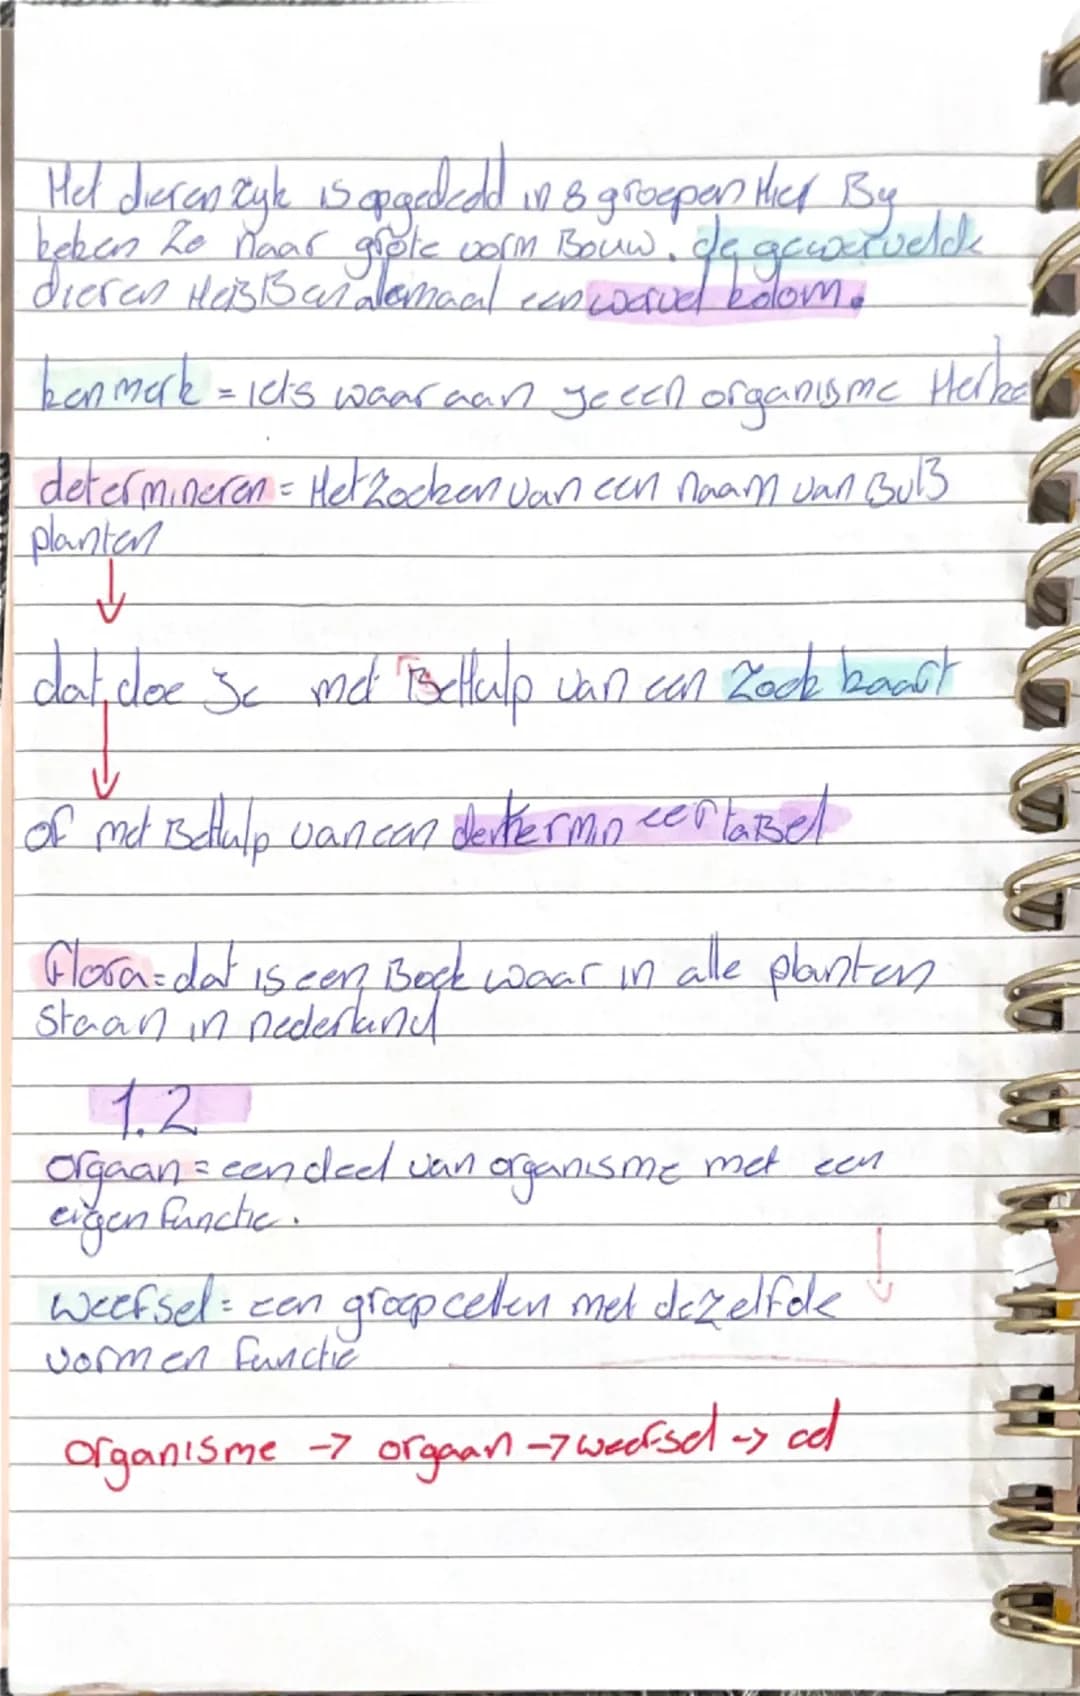 Het dieren ryk is opgedeeld in 8 groepen Hier By
keken ze naar grote vorm Bouw. de gewervelde
dieren HeBBen alemaal een wervel kolom.
kenmerk = iets waar aan je een organisme Herke
determineren = Het Zoeken van een naam van Bv13
planten
dat doe je met BeHulp van een Zoek kaart
of met BeHulp van een derkermineertaBel
flora = dat is een Boek waar in alle planten
staan in nederland
1.2
orgaan = een deel van organisme met een
eigen functie.
weefsel = een groep cellen met dezelfde
vorm en functie
organisme -> orgaan -> weefsel -> cel